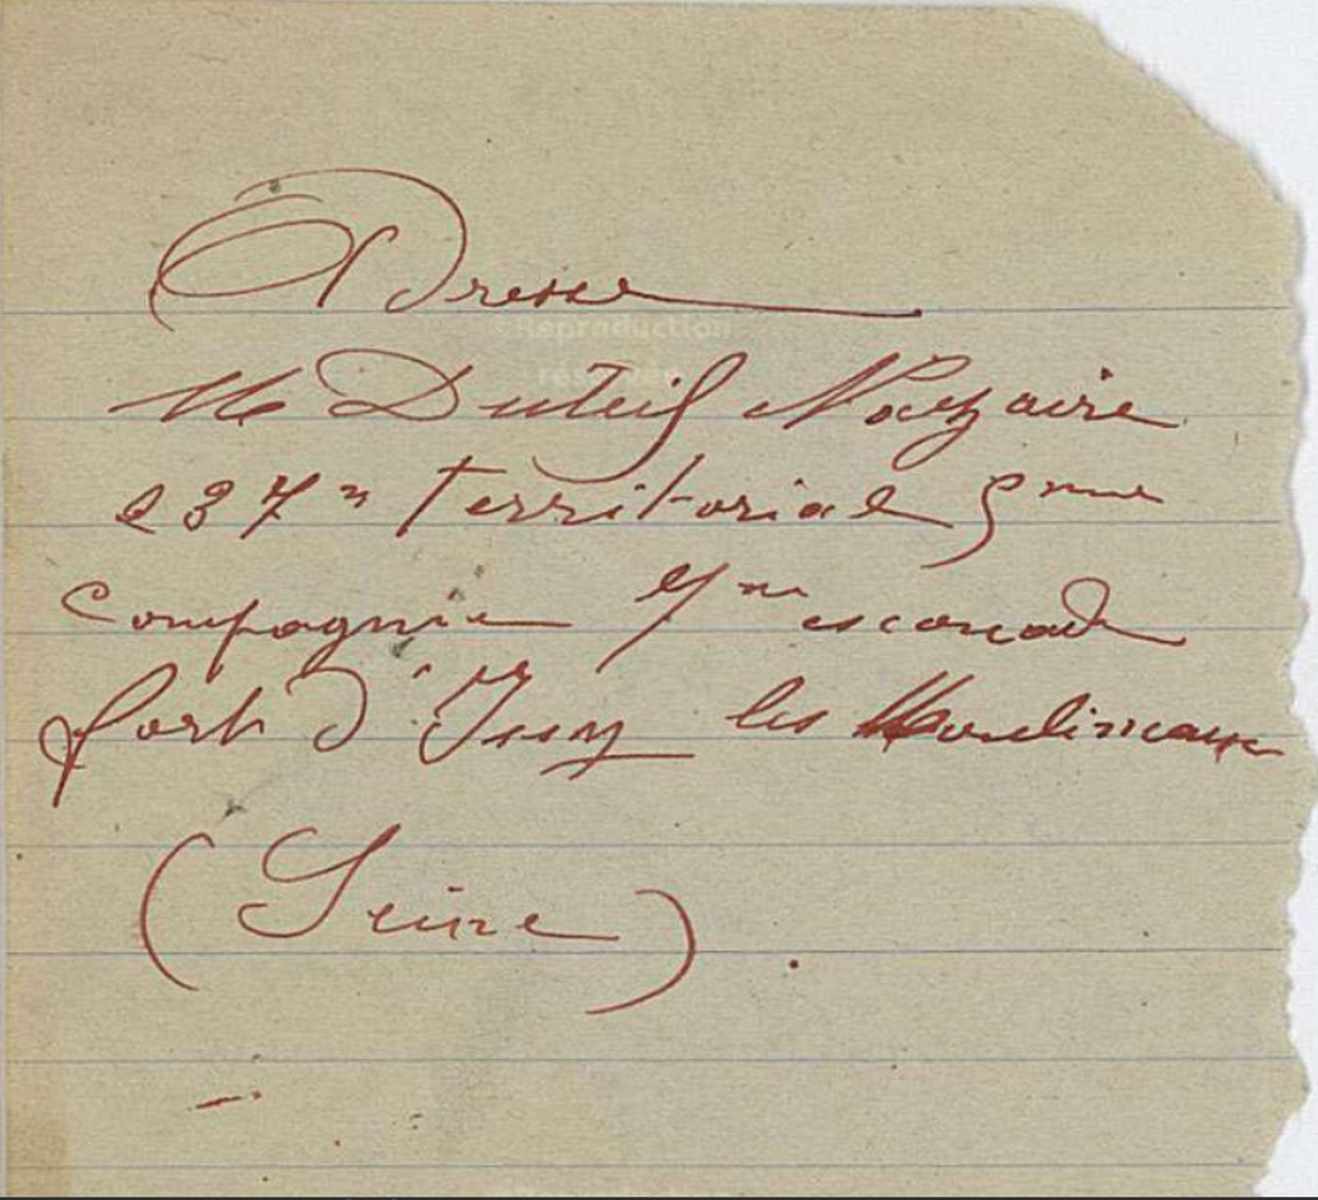 Adresse
Mr Duteil Nazaire
237e territorial 5me
Compagnie escouade
fort d'Issy les Moulineaux
(Seine).
Reproduction
réservée